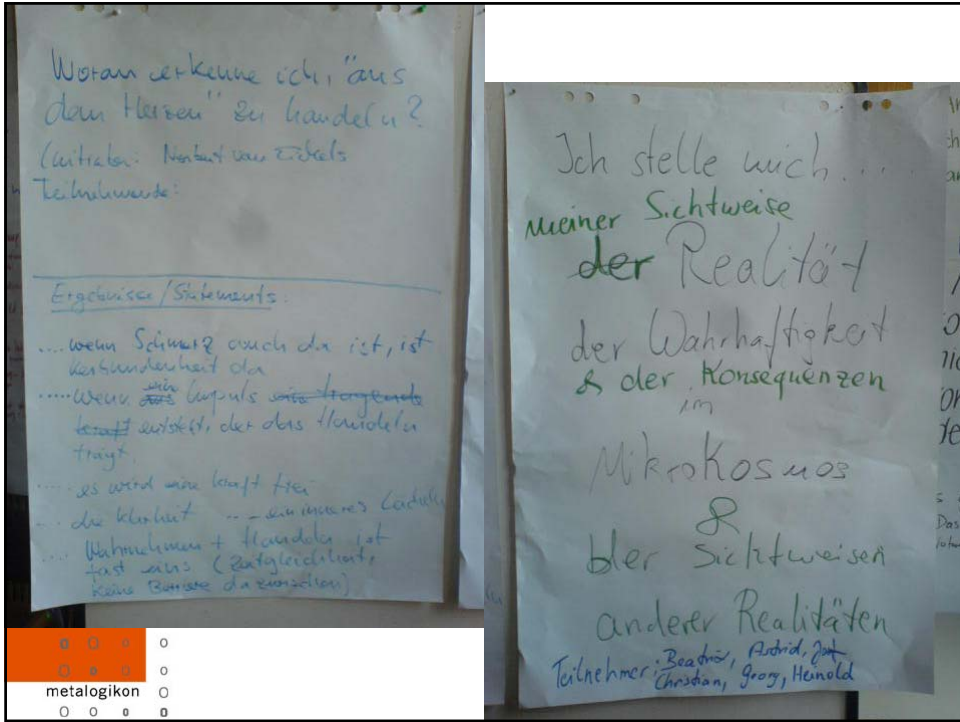 Woran erkenne ich, "aus
dem Herzen" zu handeln?
Initiator: Norbert van
Teilnehmende:
Ergebnisse/Statements:
.... wenn Schmerz auch da ist, ist
Verbundenheit da
..... wenn ein Impuls
entsteht, der das Handeln
trägt.
.... es wird eine Kraft frei
... die Klarheit ... ein inneres Lächeln
... Wahrnehmen + Handeln ist
fast eins (Zeitgleichheit,
keine Barriere dazwischen)
metalogikon
Ich stelle mich....
meiner Sichtweise
der Realität
der Wahrhaftigkeit
& der Konsequenzen
im
Mikrokosmos
&
der Sichtweisen
anderer Realitäten
Teilnehmer: Beatrix, Astrid,
Christian, Georg, Heinold